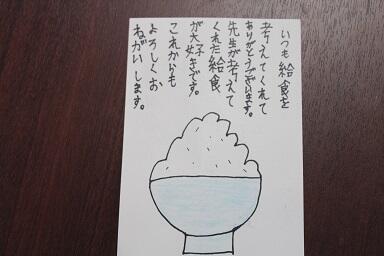 いつも給食を
考えてくれて
ありがとうございます。
先生が考えて
くれた給食
が大好きです。
これからも
よろしくお
ねがいします。